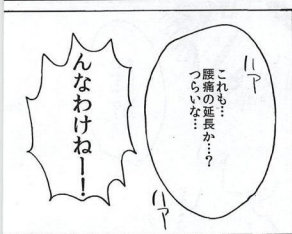 ハァ
これも…
腰痛の延長か…?
つらいな…
ハァ
んなわけねー!